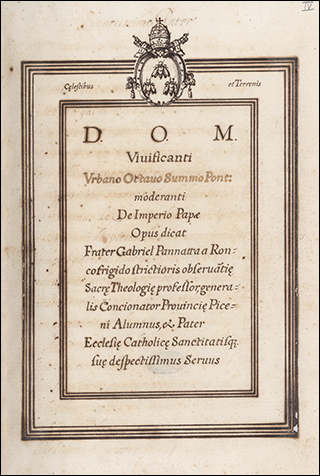 IV
Cęlestibus et Terrenis
D. O. M.
Viuificanti
Vrbano Octauo Summo Pont:
moderanti
De Imperio Papæ
Opus dicat
Frater Gabriel Pannatta a Ron-
cofrigido strictioris obseruãtię
Sacrę Theologię professor, genera-
lis Concionator Prouincię Pice-
ni Alumnus, &, Pater
Ecclesię Catholicę Sanctitatisq;
suę despectissimus Seruus